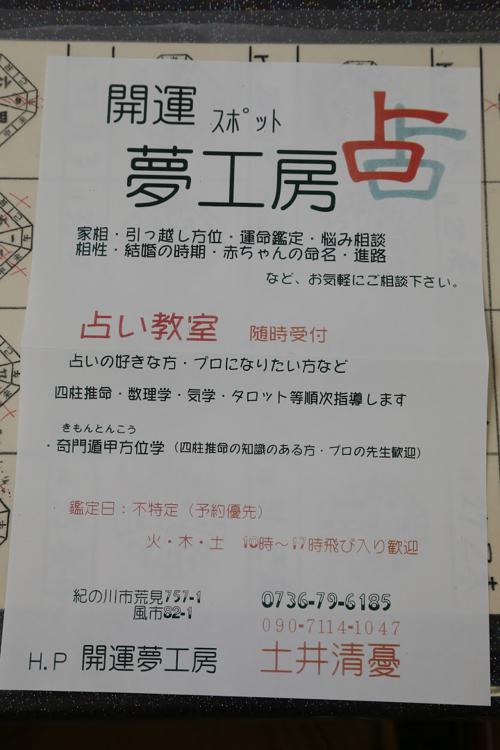 開運 スポット
占
夢工房
家相・引っ越し方位・運命鑑定・悩み相談
相性・結婚の時期・赤ちゃんの命名・進路
など、お気軽にご相談下さい。
占い教室 随時受付
占いの好きな方・プロになりたい方など
四柱推命・数理学・気学・タロット等順次指導します
きもんとんこう
・奇門遁甲方位学(四柱推命の知識のある方・プロの先生歓迎)
鑑定日:不特定(予約優先)
火・木・土 10時〜17時飛び入り歓迎
紀の川市荒見757-1
風市82-1
0736-79-6185
090-7114-1047
H.P 開運夢工房 土井清憂